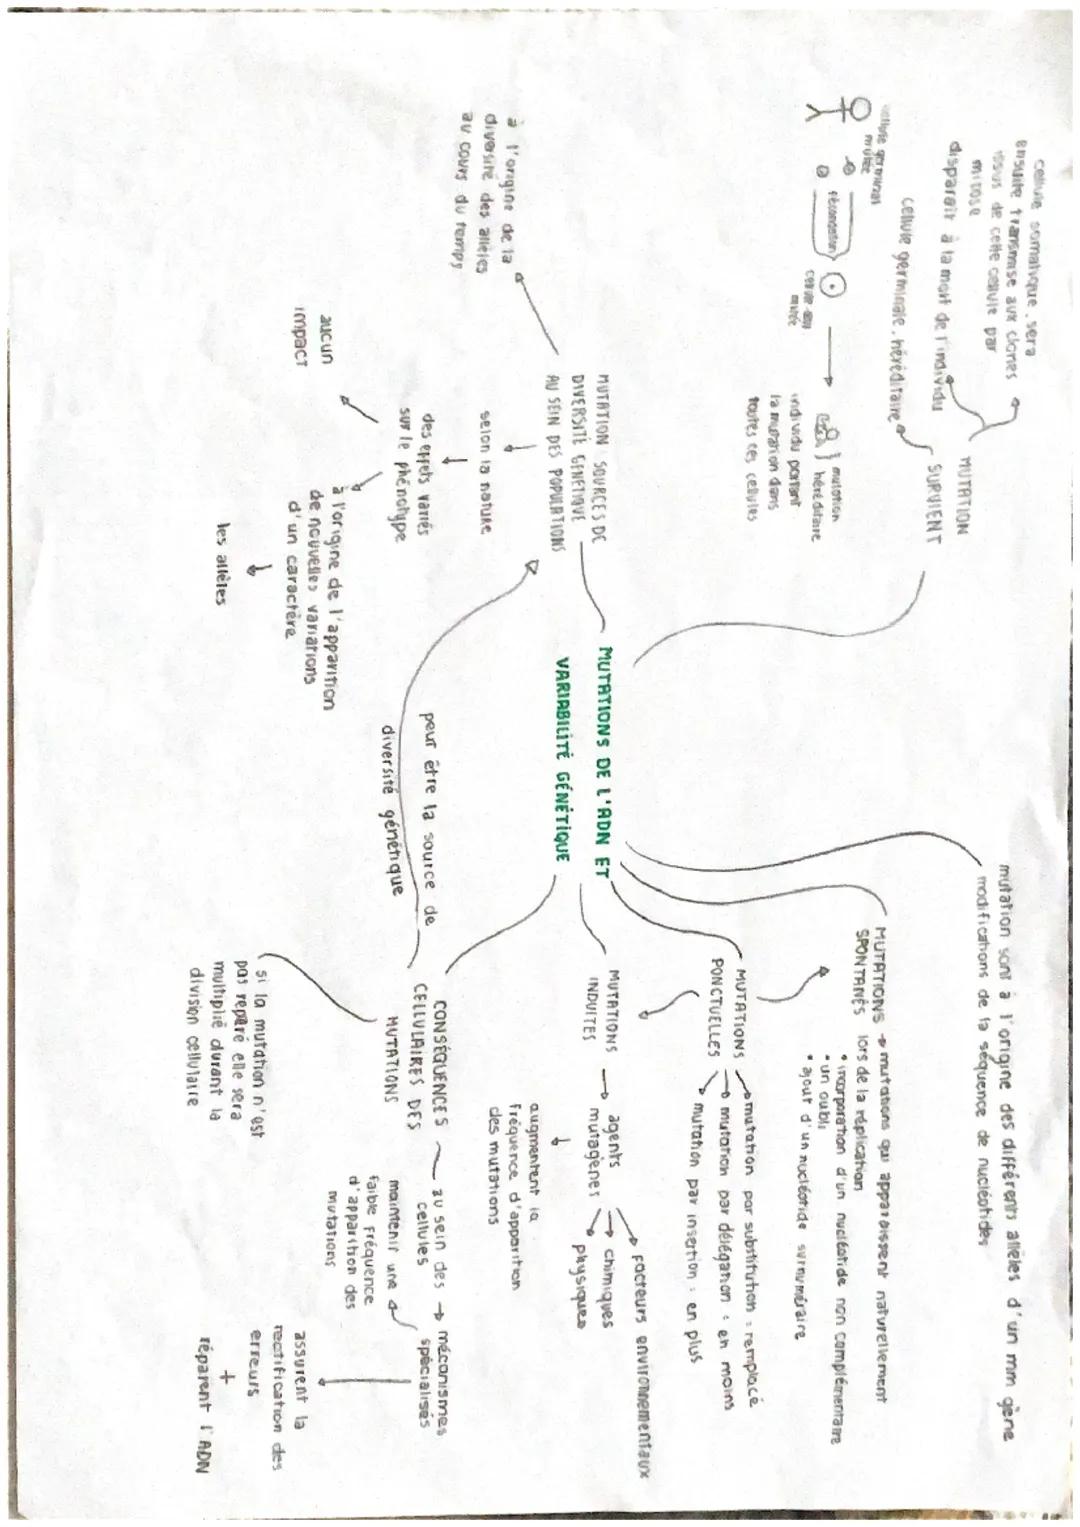 cellule somatique, sera
ensuite transmise aux clones
issus de cette cellule par
mitose
disparaît à la mort de l'individu
cellule germinale, héréditaire
MUTATION
SURVIENT
cellule germinal
mutée
fécondation
mutée
mutation
héréditaire
individu portant
la mutation dans
toutes ces cellules
mutation sont à l'origine des différents allèles d'un mm gène
modifications de la séquence de nucléotides
MUTATIONS → mutations qui apparaissent naturellement
SPONTANÉS lors de la réplication
• incorporation d'un nucléotide non complémentaire
• un oubli
• ajout d'un nucléotide surnuméraire
MUTATIONS
PONCTUELLES
→ mutation par substitution : remplacé
→ mutation par délégation : en moins
→ mutation par insertion : en plus
MUTATIONS DE L'ADN ET
VARIABILITÉ GÉNÉTIQUE
MUTATIONS
INDUITES
→ agents
mutagènes
→ facteurs environnementaux
→ chimiques
→ physiques
augmentent la
fréquence d'apparition
des mutations
MUTATION SOURCES DE
DIVERSITÉ GÉNÉTIQUE
AU SEIN DES POPULATIONS
à l'origine de la
diversité des allèles
au cours du temps
selon la nature
des effets variés
sur le phénotype
aucun
impact
à l'origine de l'apparition
de nouvelles variations
d'un caractère
les allèles
peut être la source de
diversité génétique
CONSÉQUENCES
CELLULAIRES DES
MUTATIONS
au sein des → mécanismes
cellules spécialisés
maintenir une
faible fréquence
d'apparition des
mutations
assurent la
rectification des
erreurs
+
réparent l'ADN
si la mutation n'est
pas réparé elle sera
multiplié durant la
division cellulaire